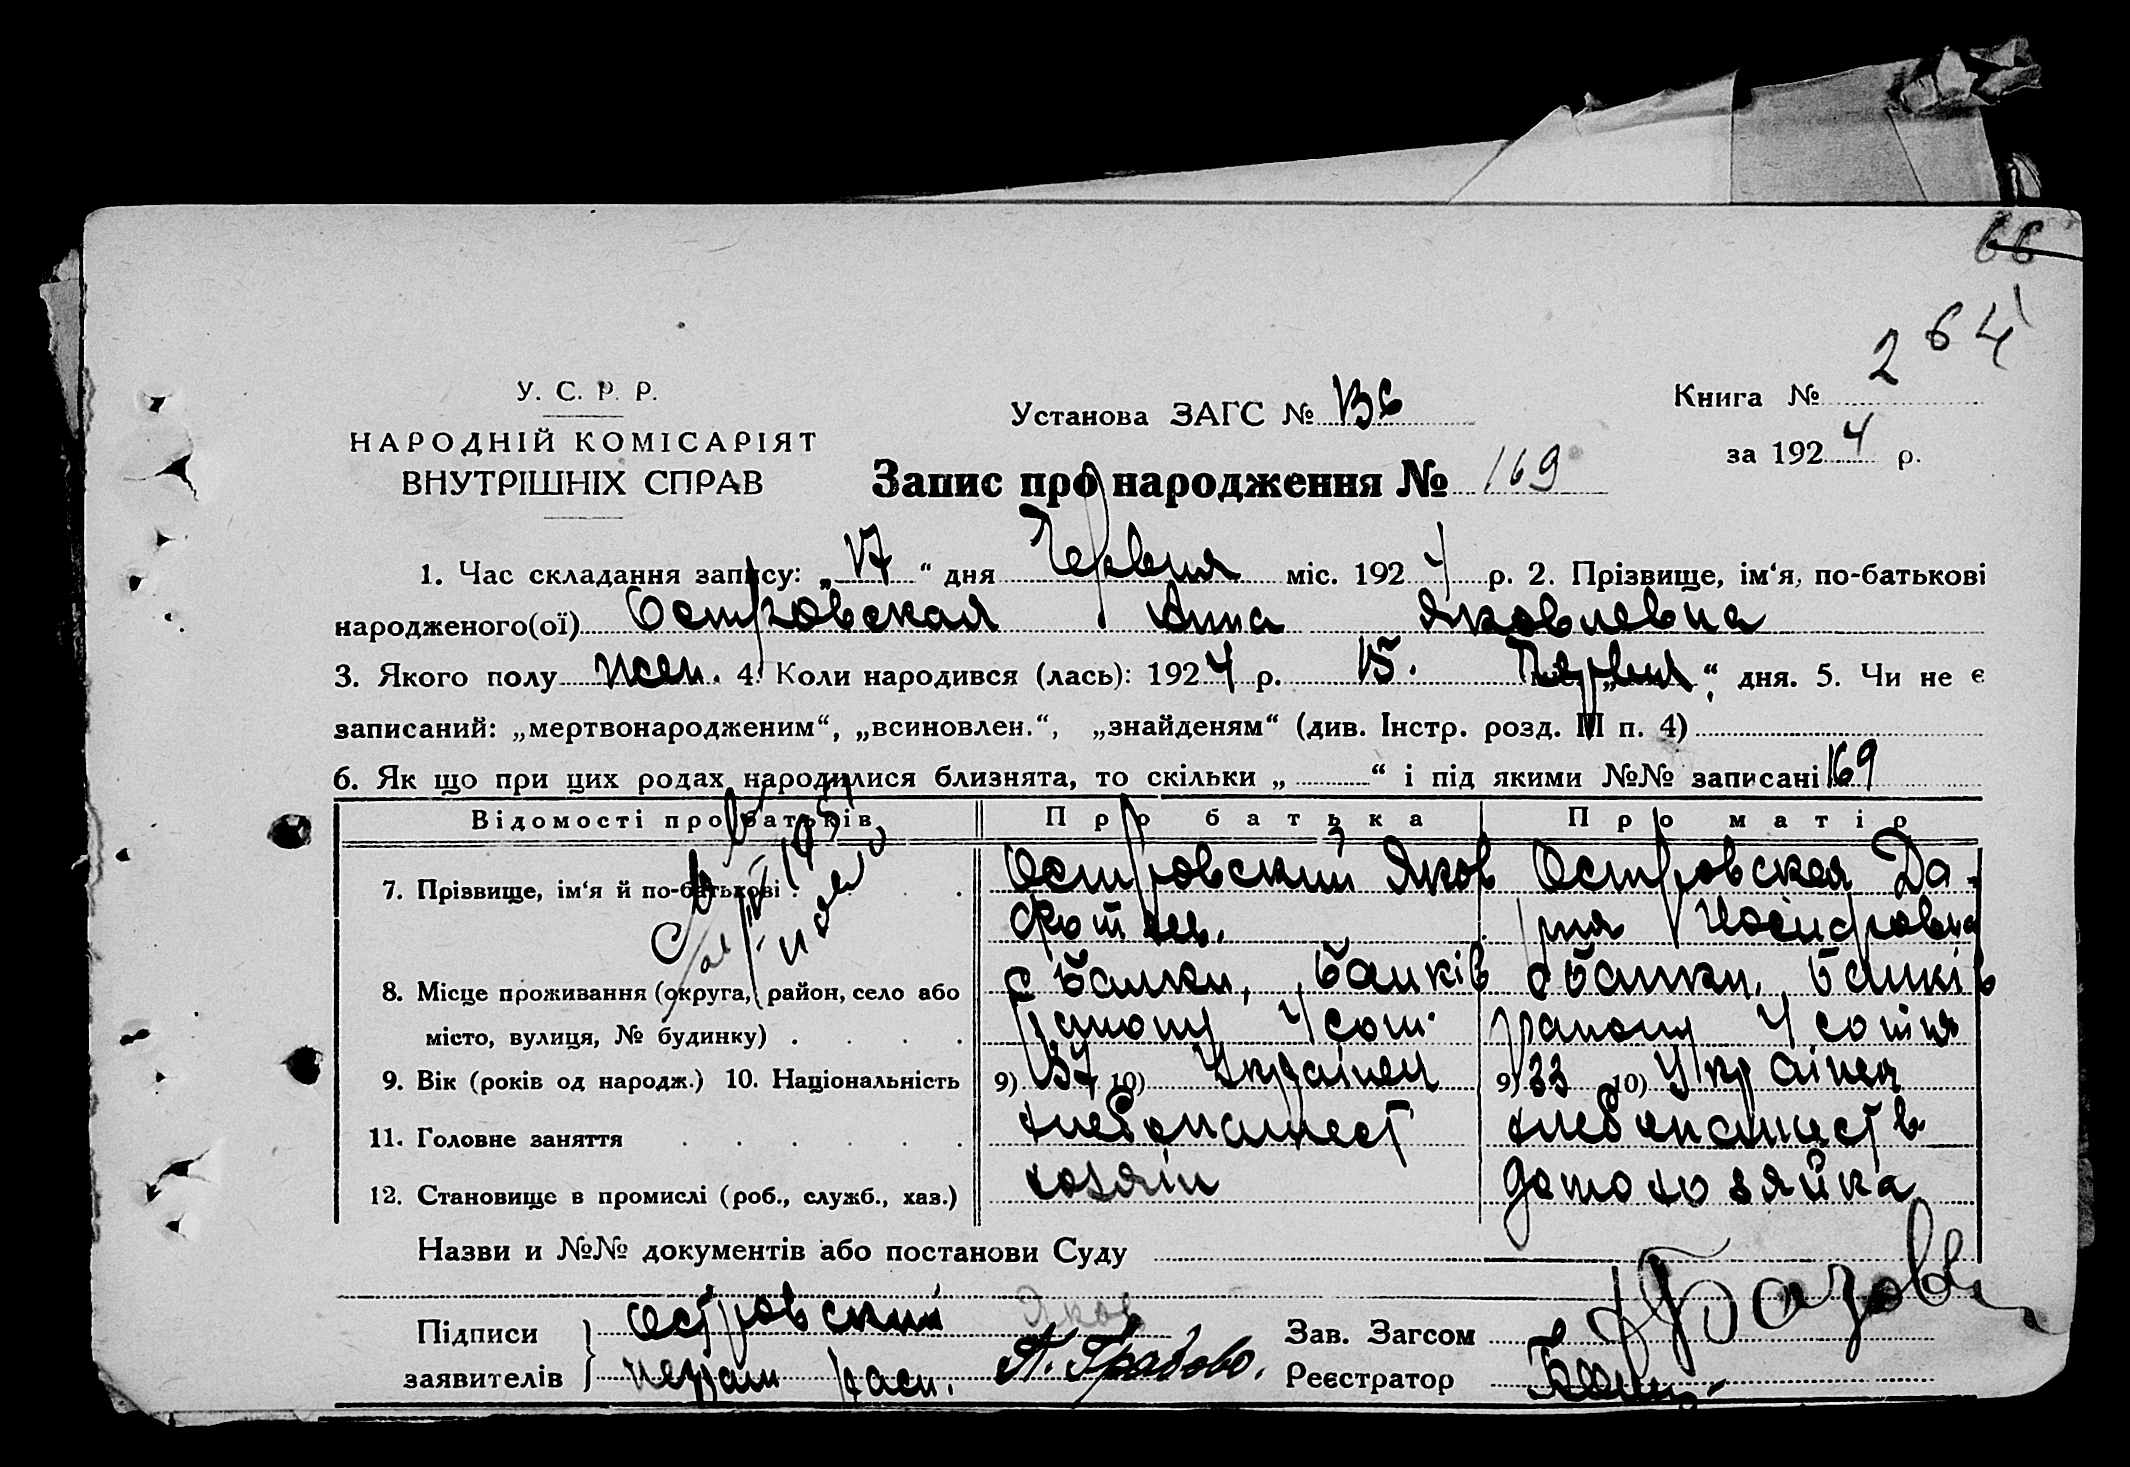 66
264
У. С. Р. Р.
НАРОДНІЙ КОМІСАРІЯТ
ВНУТРІШНІХ СПРАВ
Установа ЗАГС №
Книга №
за 1924 р.
Запис про народження № 169
1. Час складання запису: „17“ дня Червня міс. 1924 р. 2. Прізвище, ім‘я, по-батькові
народженого(ої) Островская Анна Яковлевна
3. Якого полу жен. 4. Коли народився (лась): 1924 р. 15. Червня “ дня. 5. Чи не є
записаний: „мертвонародженим“, „всиновлен.“, „знайденям“ (див. Інстр. розд. III п. 4)
6. Як що при цих родах народилися близнята, то скільки „ “ і під якими №№ записані 169
Відомості про батьків Про батька Про матір
7. Прізвище, ім‘я й по-батькові . . . Островский Яков Островская Да-
рия
8. Місце проживання (округа, район, село або с Балки, Балків с Балки, Балків
місто, вулиця, № будинку) . . . . району 4 сот. району 4 сотня
9. Вік (років од народж.) 10. Національність 9) 37 10) Украінец 9) 33 10) Украінка
11. Головне заняття . . . . . . хлебопашест хлебопашеств
12. Становище в промислі (роб., служб., хаз.) хозяін домохозяйка
Назви и №№ документів або постанови Суду
Підписи заявителів } Островский Яков
неграм расп.
Зав. Загсом
Реєстратор